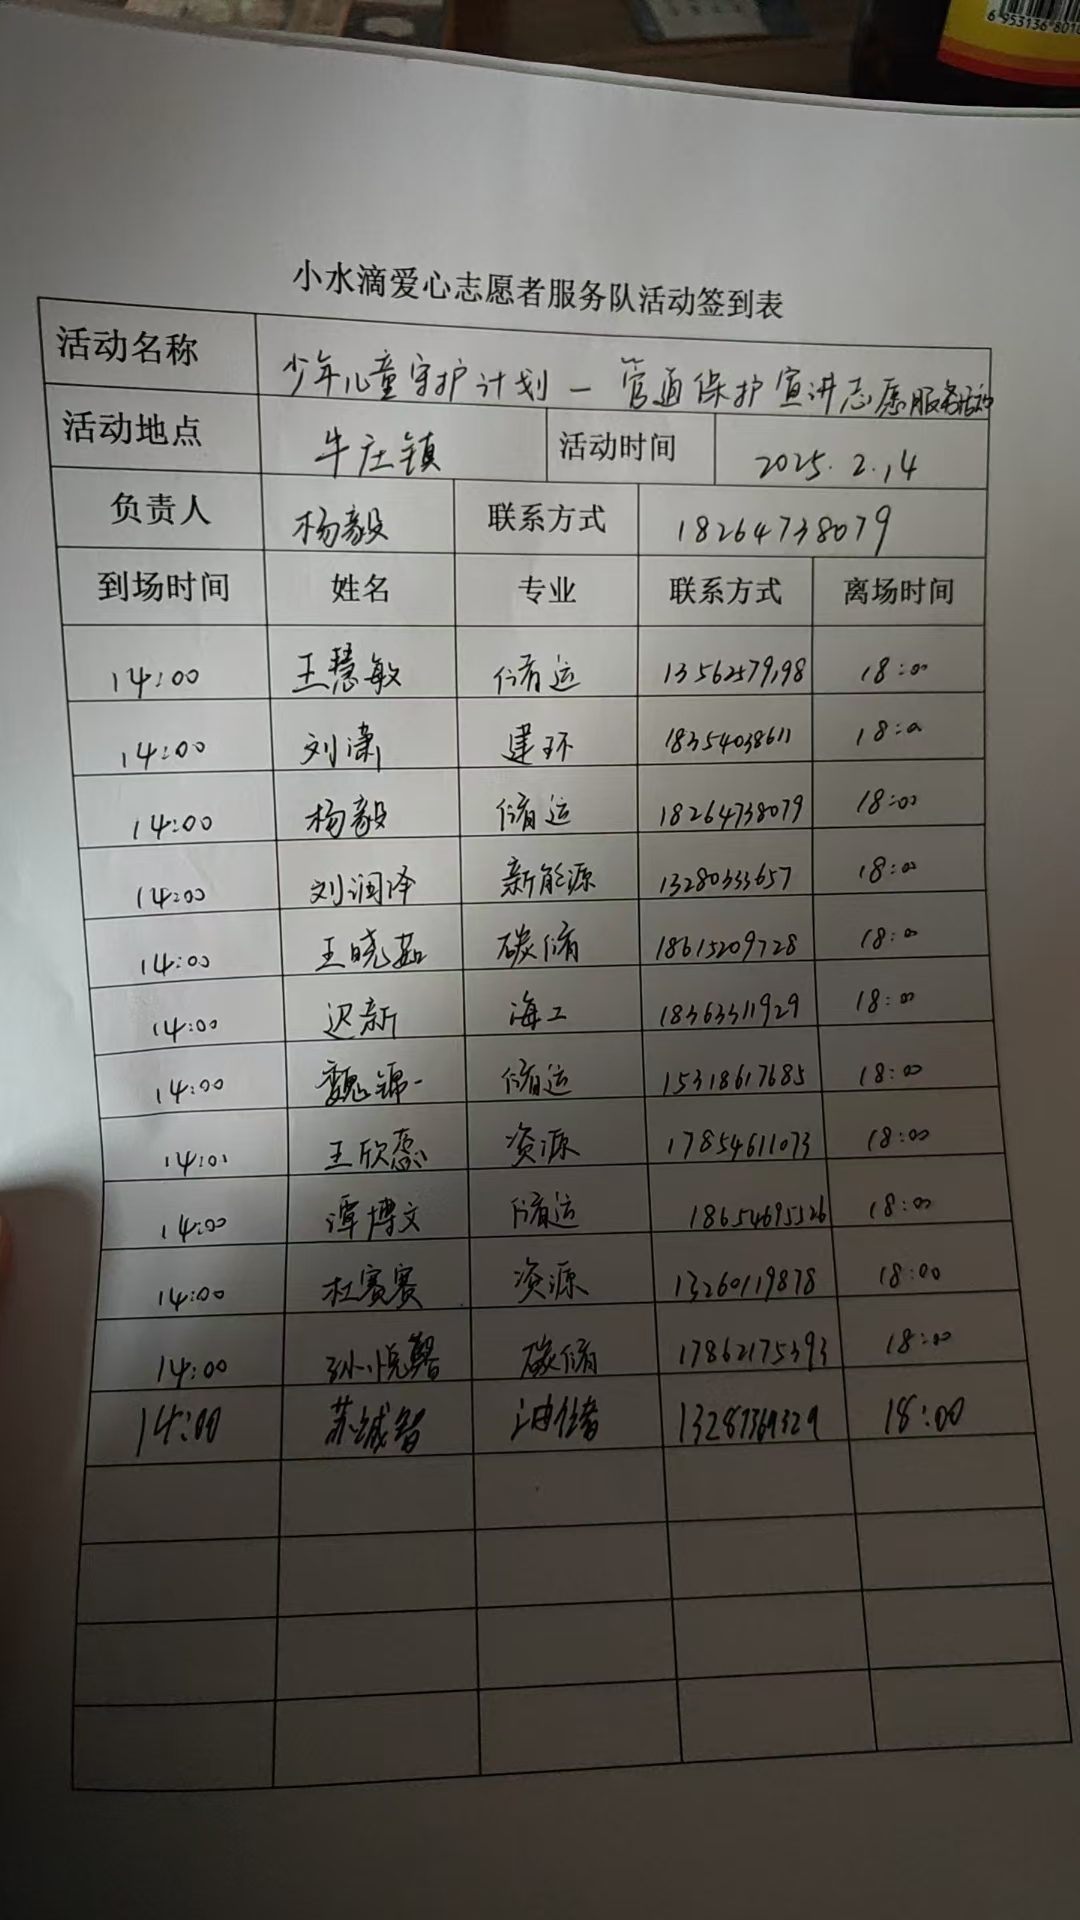 6 953136 801
小水滴爱心志愿者服务队活动签到表
活动名称 少年儿童守护计划一管道保护宣讲志愿服务活动
活动地点 牛庄镇 活动时间 2025.2.14
负责人 杨毅 联系方式 18264738079
到场时间 姓名 专业 联系方式 离场时间
14:00 王慧敏 储运 13562579198 18:00
14:00 刘潇 建环 18354038611 18:00
14:00 杨毅 储运 18264738079 18:00
14:00 刘润泽 新能源 13280333657 18:00
14:00 王晓茹 碳储 18615209728 18:00
14:00 迟新 海工 18363311929 18:00
14:00 魏锦一 储运 15318617685 18:00
14:01 王欣蕊 资源 17854611073 18:00
14:00 谭博文 储运 18654695526 18:00
14:00 杜赛赛 资源 13260119878 18:00
14:00 孙悦馨 碳储 17862175393 18:00
14:00 苏诚智 油储 13287369329 18:00